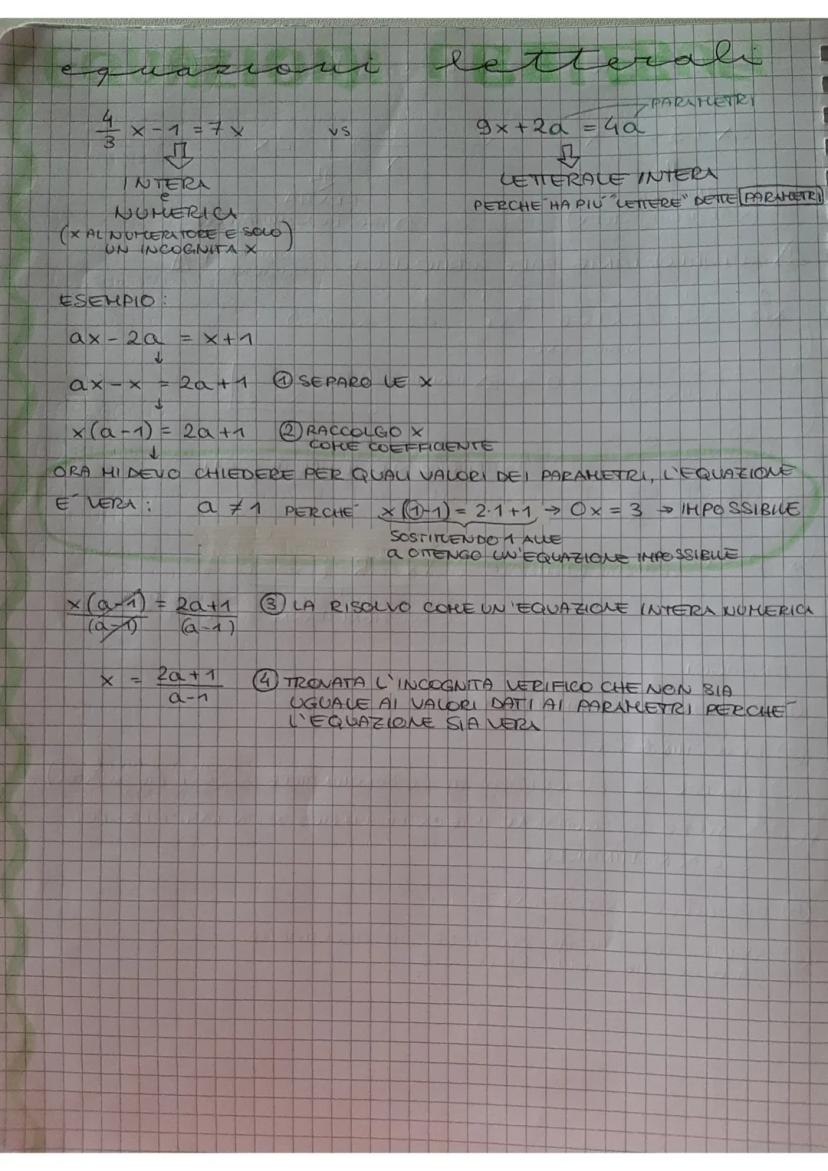 equazioni letterali
4/3 x - 1 = 7x vs 9x + 2a = 4a PARAMETRI
INTERA
e
NUMERICA
(X AL NUMERATORE E SOLO
UN INCOGNITA X)
LETTERALE INTERA
PERCHE' HA PIÙ "LETTERE" DETTE PARAMETRI
ESEMPIO:
ax - 2a = x + 1
↓
ax - x = 2a + 1 ① SEPARO LE X
↓
x(a - 1) = 2a + 1 ② RACCOLGO X
COME COEFFICIENTE
↓
ORA MI DEVO CHIEDERE PER QUALI VALORI DEI PARAMETRI, L'EQUAZIONE
E' VERA: a ≠ 1 PERCHE' x(1-1) = 2·1+1 → 0x = 3 → IMPOSSIBILE
SOSTITUENDO 1 ALLE
a OTTENGO UN'EQUAZIONE IMPOSSIBILE
x(a-1)/(a-1) = 2a+1/(a-1) ③ LA RISOLVO COME UN'EQUAZIONE INTERA NUMERICA
x = 2a+1/a-1 ④ TROVATA L'INCOGNITA VERIFICO CHE NON SIA
UGUALE AI VALORI DATI AI PARAMETRI PERCHE'
L'EQUAZIONE SIA VERA